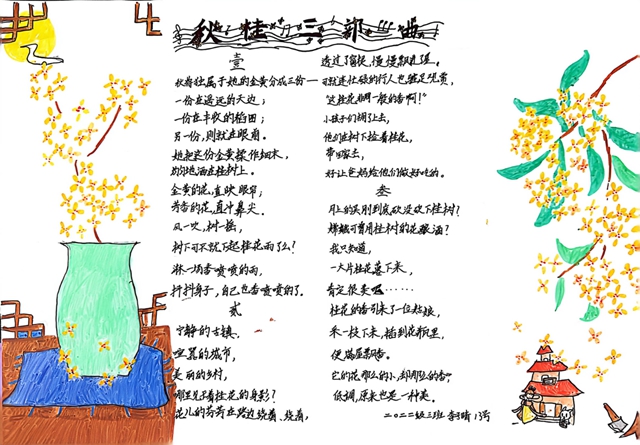 秋桂三部曲
壹
秋将独属于她的金黄分成三份——
一份在遥远的天边；
一份在丰收的稻田；
另一份，则就在眼眉。
她把这份金黄揉作细末，
均匀地洒在桂树上。
金黄的花，直映眼帘；
芳香的花，直冲鼻尖。
风一吹，树一摇，
树下可不就下起桂花雨了么？
淋一场香喷喷的雨，
抖抖身子，自己也香喷喷的了。
贰
宁静的古镇，
喧嚣的城市，
美丽的乡村，
哪里见不着桂花的身影？
花儿的芬芳在路边绕着，绕着，
透过了窗侯，慢慢飘在屋。
可就连忙碌的行人也驻足观赏，
“这桂花相同一般的香啊！”
小孩子们拥上去，
他们在树下捡着桂花，
带回家去，
好让爸妈给他们做好吃的。
叁
月上的吴刚到底砍没砍下桂树？
嫦娥可曾用桂树的花酿酒？
我只知道，
一大片桂花落下来，
肯定很美吧……
桂花的香引来了一位姑娘，
采一枝下来，插到花瓶里，
使满屋飘香。
它的花那么的小，却那么的香？
低调，原来也是一种美。
二〇二二级三班 李晴